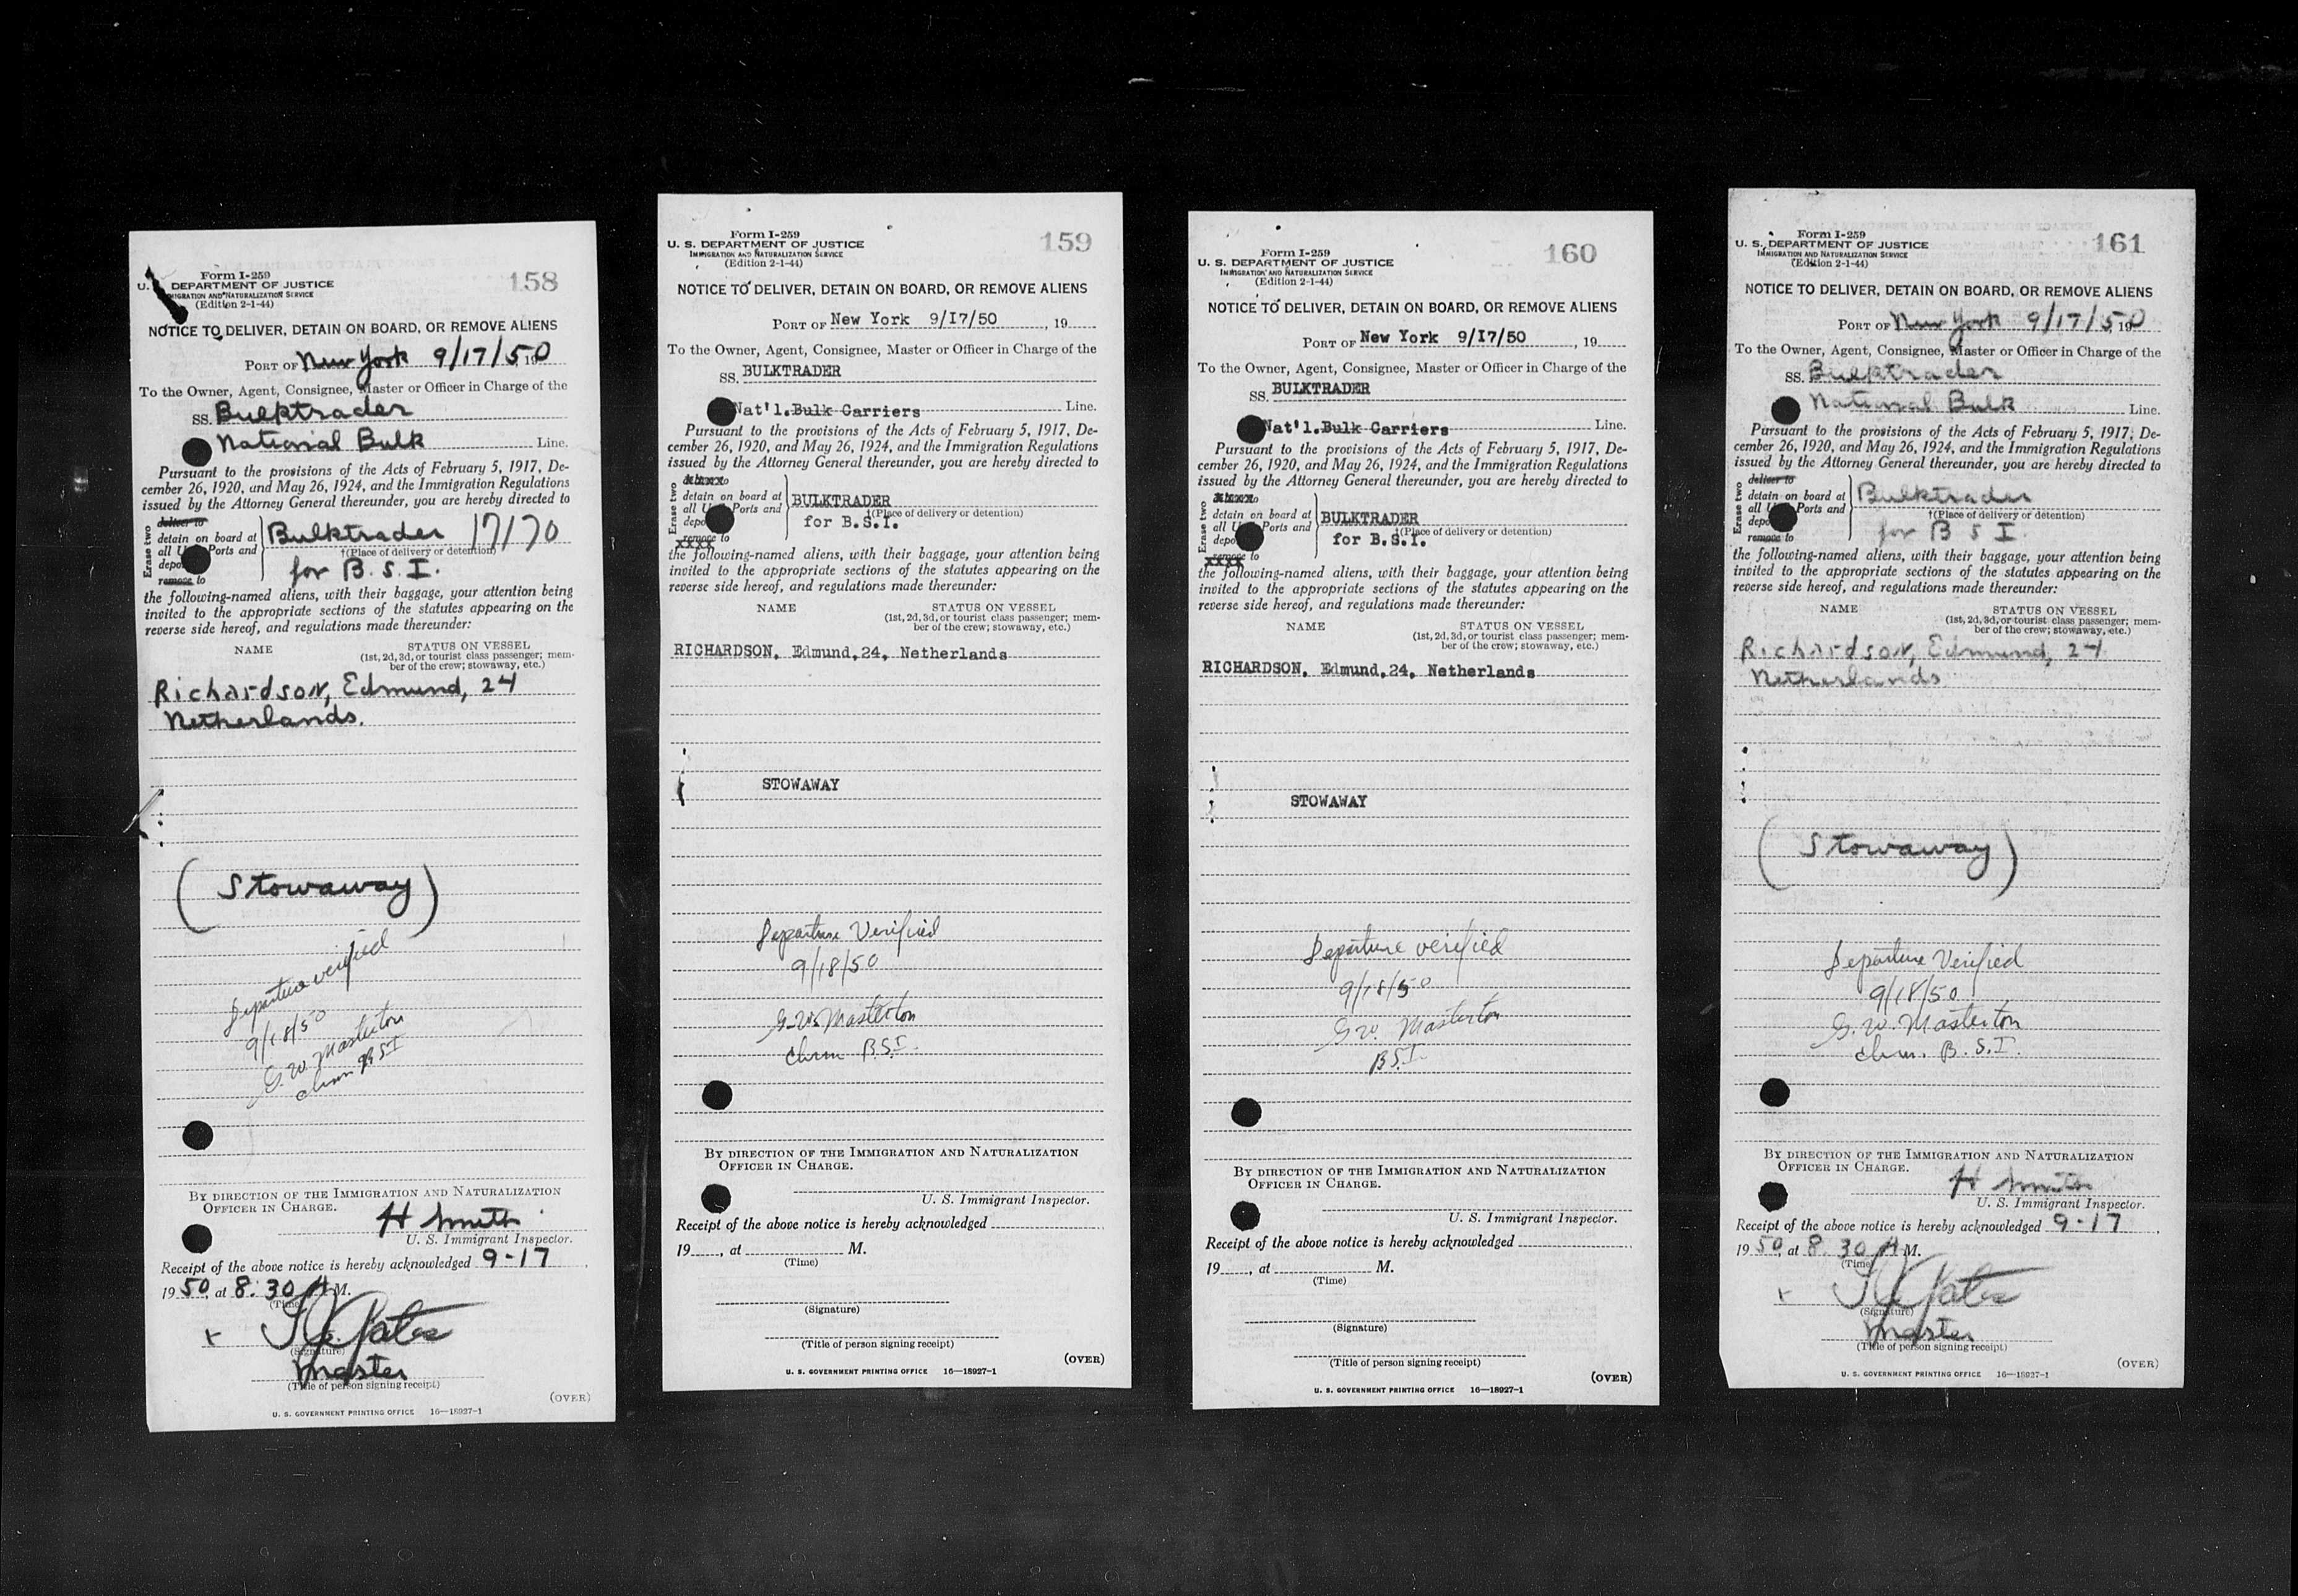 158
Form I-259
U. S. DEPARTMENT OF JUSTICE
IMMIGRATION AND NATURALIZATION SERVICE
(Edition 2-1-44)
NOTICE TO DELIVER, DETAIN ON BOARD, OR REMOVE ALIENS
PORT OF New York 9/17/50, 19
To the Owner, Agent, Consignee, Master or Officer in Charge of the
SS. Bulktrader
National Bulk Line.
Pursuant to the provisions of the Acts of February 5, 1917, De-
cember 26, 1920, and May 26, 1924, and the Immigration Regulations
issued by the Attorney General thereunder, you are hereby directed to
Erase two
deliver to
detain on board at Bulktrader 17/70
all U Ports and †(Place of delivery or detention)
depo for B. S. I.
remove to
the following-named aliens, with their baggage, your attention being
invited to the appropriate sections of the statutes appearing on the
reverse side hereof, and regulations made thereunder:
NAME STATUS ON VESSEL
(1st, 2d, 3d, or tourist class passenger; mem-
ber of the crew; stowaway, etc.)
Richardson, Edmund, 24
Netherlands.
(Stowaway)
Departure verified
9/18/50
G. W. Masterton
chrm BSI
BY DIRECTION OF THE IMMIGRATION AND NATURALIZATION
OFFICER IN CHARGE.
H Smith
U. S. Immigrant Inspector.
Receipt of the above notice is hereby acknowledged 9-17,
19 50, at 8:30 A M.
(Time)
x Yates
(Signature)
Master
(Title of person signing receipt)
(OVER)
U. S. GOVERNMENT PRINTING OFFICE 16—18927-1
159
Form I-259
U. S. DEPARTMENT OF JUSTICE
IMMIGRATION AND NATURALIZATION SERVICE
(Edition 2-1-44)
NOTICE TO DELIVER, DETAIN ON BOARD, OR REMOVE ALIENS
PORT OF New York 9/I7/50, 19
To the Owner, Agent, Consignee, Master or Officer in Charge of the
SS. BULKTRADER
Nat'l.Bulk Carriers Line.
Pursuant to the provisions of the Acts of February 5, 1917, De-
cember 26, 1920, and May 26, 1924, and the Immigration Regulations
issued by the Attorney General thereunder, you are hereby directed to
Erase two
xxxxx to
detain on board at BULKTRADER
all U Ports and †(Place of delivery or detention)
depo for B.S.I.
remove to
xxxx
the following-named aliens, with their baggage, your attention being
invited to the appropriate sections of the statutes appearing on the
reverse side hereof, and regulations made thereunder:
NAME STATUS ON VESSEL
(1st, 2d, 3d, or tourist class passenger; mem-
ber of the crew; stowaway, etc.)
RICHARDSON, Edmund,24, Netherlands
STOWAWAY
Departure Verified
9/18/50
G. W. Masterton
Chrm B.S.I.
BY DIRECTION OF THE IMMIGRATION AND NATURALIZATION
OFFICER IN CHARGE.
U. S. Immigrant Inspector.
Receipt of the above notice is hereby acknowledged
19, at M.
(Time)
(Signature)
(Title of person signing receipt)
(OVER)
U. S. GOVERNMENT PRINTING OFFICE 16—18927-1
160
Form I-259
U. S. DEPARTMENT OF JUSTICE
IMMIGRATION AND NATURALIZATION SERVICE
(Edition 2-1-44)
NOTICE TO DELIVER, DETAIN ON BOARD, OR REMOVE ALIENS
PORT OF New York 9/I7/50, 19
To the Owner, Agent, Consignee, Master or Officer in Charge of the
SS. BULKTRADER
Nat'l.Bulk Carriers Line.
Pursuant to the provisions of the Acts of February 5, 1917, De-
cember 26, 1920, and May 26, 1924, and the Immigration Regulations
issued by the Attorney General thereunder, you are hereby directed to
Erase two
xxxxx to
detain on board at BULKTRADER
all U Ports and †(Place of delivery or detention)
depo for B.S.I.
remove to
xxxx
the following-named aliens, with their baggage, your attention being
invited to the appropriate sections of the statutes appearing on the
reverse side hereof, and regulations made thereunder:
NAME STATUS ON VESSEL
(1st, 2d, 3d, or tourist class passenger; mem-
ber of the crew; stowaway, etc.)
RICHARDSON, Edmund,24, Netherlands
STOWAWAY
Departure verified
9/18/50
G. W. Masterton
B.S.I.
BY DIRECTION OF THE IMMIGRATION AND NATURALIZATION
OFFICER IN CHARGE.
U. S. Immigrant Inspector.
Receipt of the above notice is hereby acknowledged
19, at M.
(Time)
(Signature)
(Title of person signing receipt)
(OVER)
U. S. GOVERNMENT PRINTING OFFICE 16—18927-1
161
Form I-259
U. S. DEPARTMENT OF JUSTICE
IMMIGRATION AND NATURALIZATION SERVICE
(Edition 2-1-44)
NOTICE TO DELIVER, DETAIN ON BOARD, OR REMOVE ALIENS
PORT OF New York 9/17/50, 19
To the Owner, Agent, Consignee, Master or Officer in Charge of the
SS. Bulktrader
National Bulk Line.
Pursuant to the provisions of the Acts of February 5, 1917, De-
cember 26, 1920, and May 26, 1924, and the Immigration Regulations
issued by the Attorney General thereunder, you are hereby directed to
Erase two
deliver to
detain on board at Bulktrader
all U Ports and †(Place of delivery or detention)
depo for B S I.
remove to
the following-named aliens, with their baggage, your attention being
invited to the appropriate sections of the statutes appearing on the
reverse side hereof, and regulations made thereunder:
NAME STATUS ON VESSEL
(1st, 2d, 3d, or tourist class passenger; mem-
ber of the crew; stowaway, etc.)
Richardson, Edmund, 24
Netherlands
(Stowaway)
Departure Verified
9/18/50
G. W. Masterton
chm. B.S.I.
BY DIRECTION OF THE IMMIGRATION AND NATURALIZATION
OFFICER IN CHARGE.
H Smith
U. S. Immigrant Inspector.
Receipt of the above notice is hereby acknowledged 9-17,
19 50, at 8:30 A M.
(Time)
x Yates
(Signature)
Master
(Title of person signing receipt)
(OVER)
U. S. GOVERNMENT PRINTING OFFICE 16—18927-1